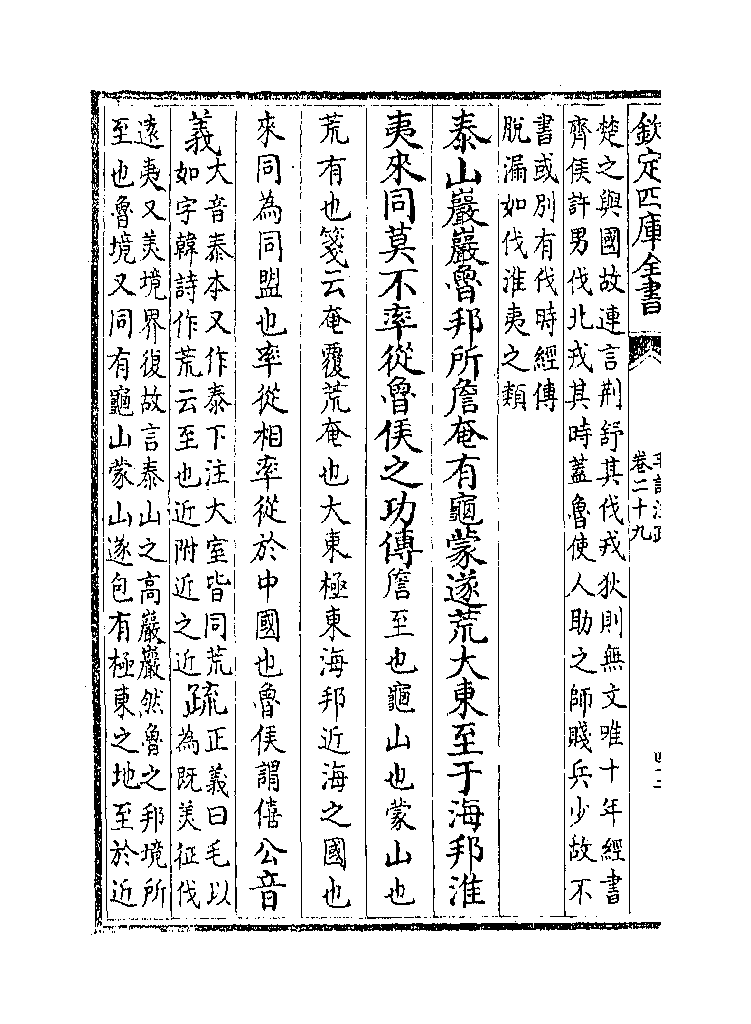 欽定四庫全書
卷二十九
楚之與國故連言荆舒其伐戎狄則無文唯十年經書
齊侯許男伐北戎其時蓋魯使人助之師賤兵少故不
書或別有伐時經傳
脫漏如伐淮夷之類
泰山巖巖魯邦所詹奄有龜蒙遂荒大東至于海邦淮
夷來同莫不率從魯侯之功傳詹至也龜山也蒙山也
荒有也箋云奄覆荒奄也大東極東海邦近海之國也
來同為同盟也率從相率從於中國也魯侯謂僖公音
義大音泰本又作泰下注大室皆同荒
如字韓詩作荒云至也近附近之近疏正義曰毛以
為既美征伐
遠夷又美境界復故言泰山之高巖巖然魯之邦境所
至也魯境又同有龜山蒙山遂包有極東之地至於近